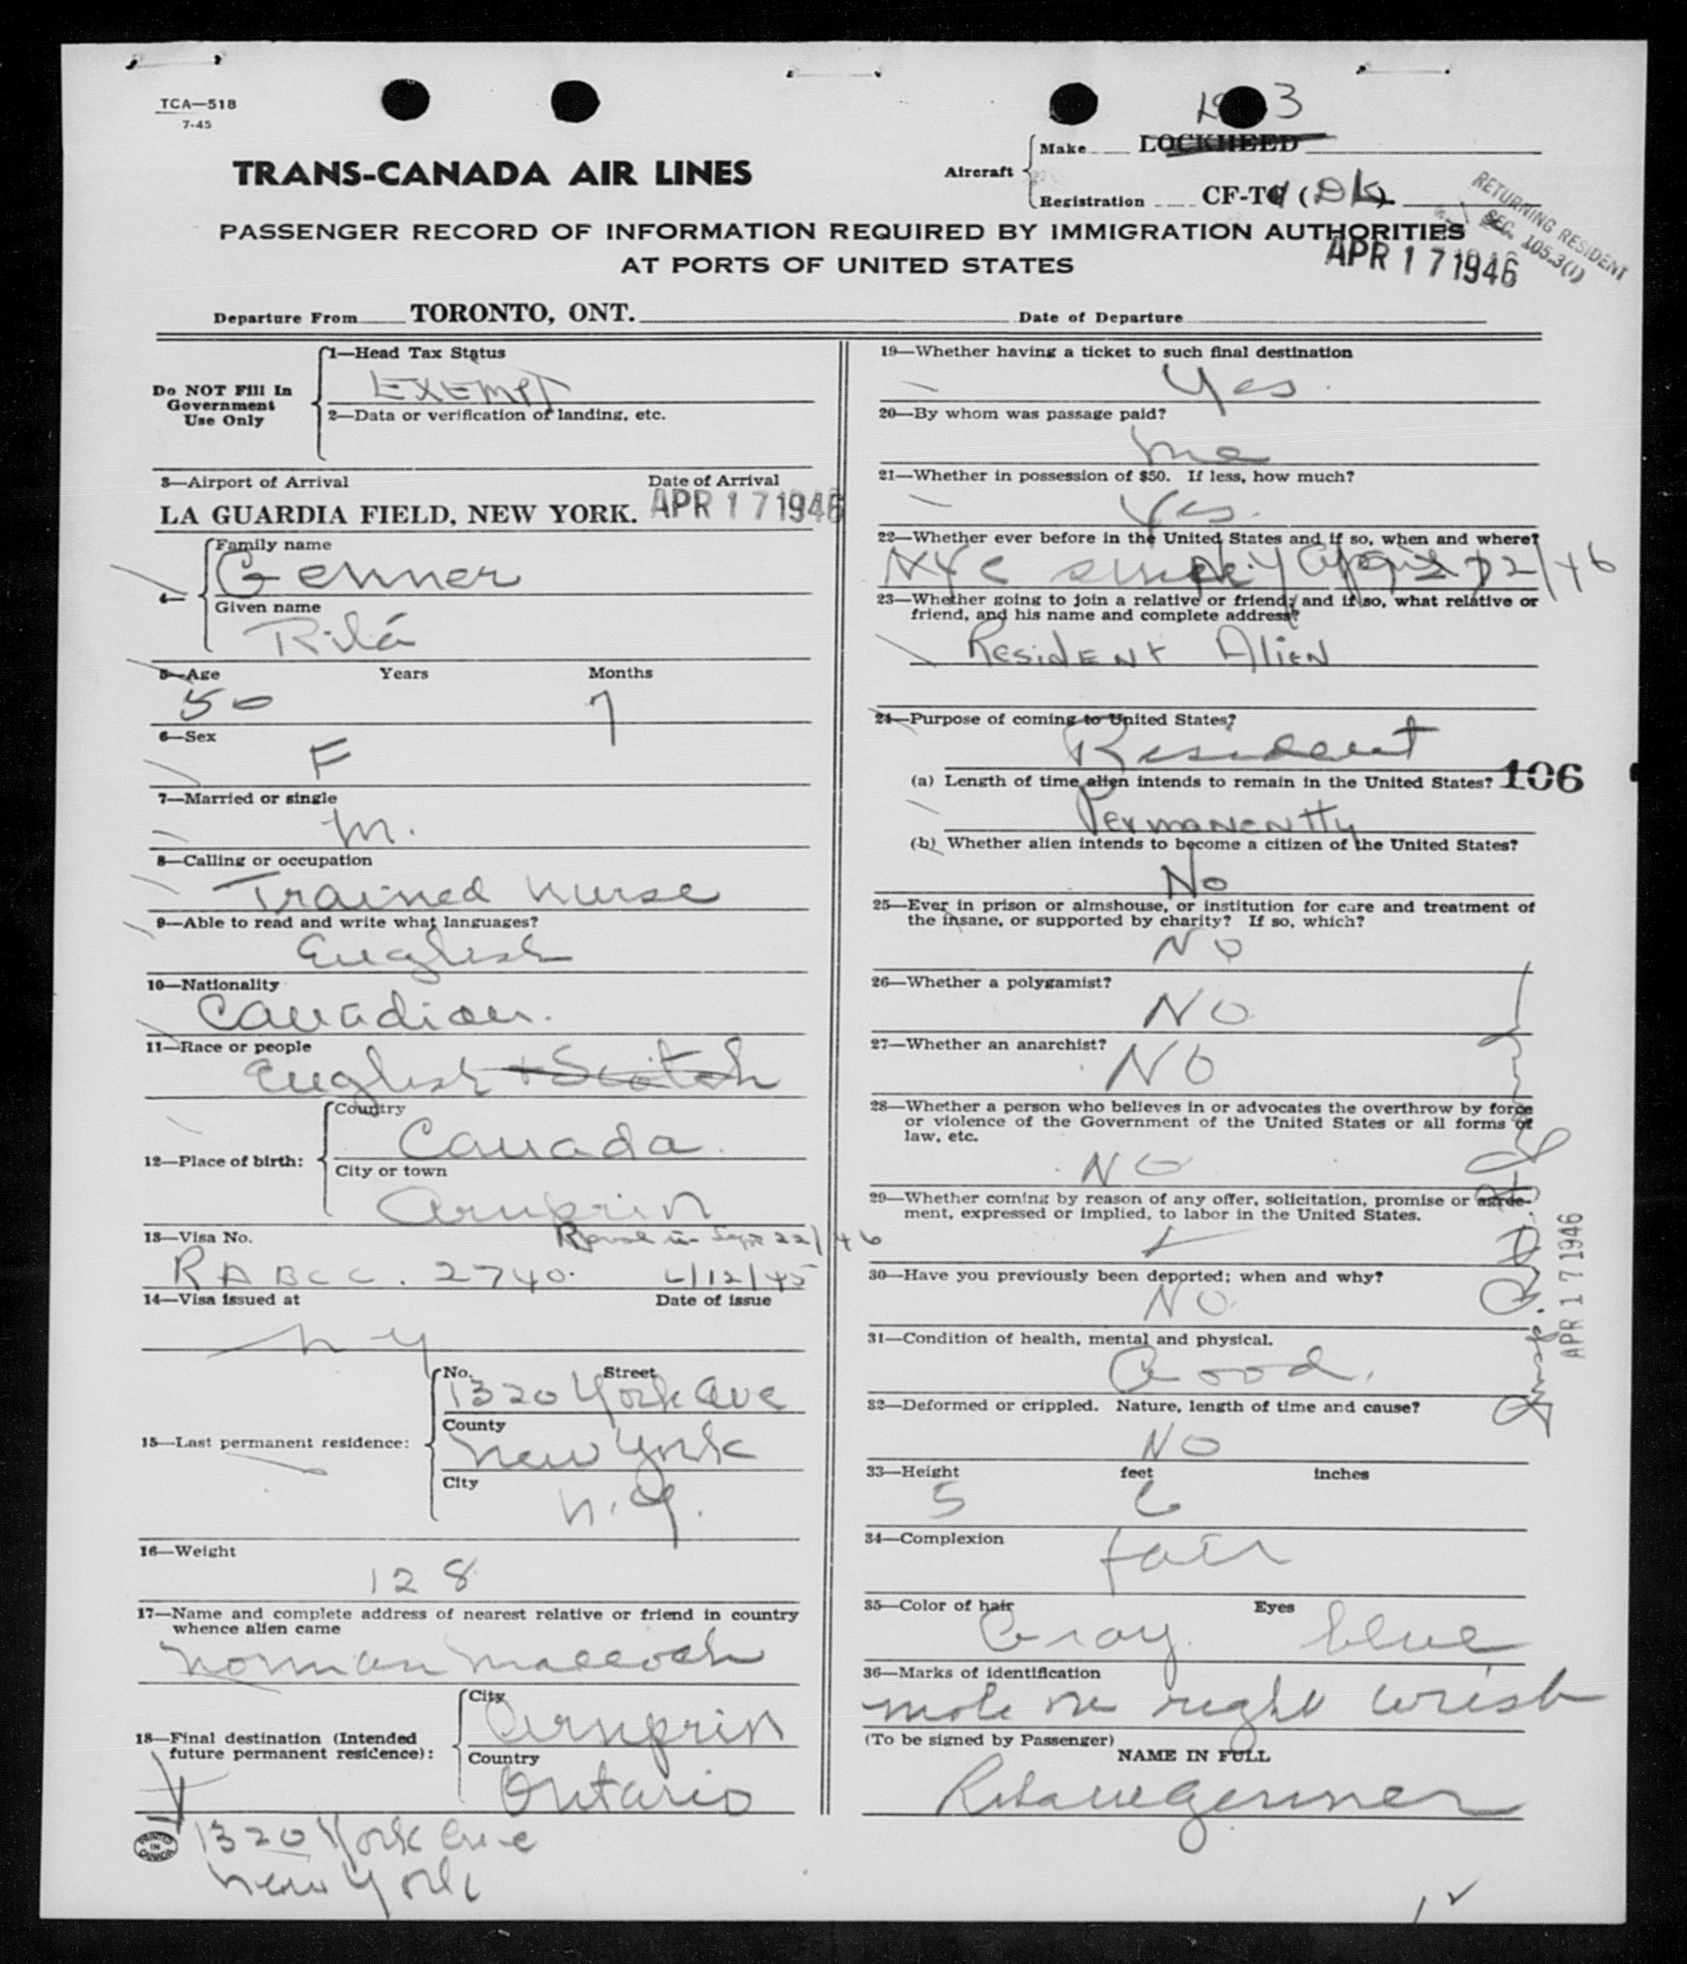 TCA—518
7-45
3
Aircraft
Make LOCKHEED
Registration CF-T (DK)
TRANS-CANADA AIR LINES
PASSENGER RECORD OF INFORMATION REQUIRED BY IMMIGRATION AUTHORITIES
AT PORTS OF UNITED STATES
RETURNING RESIDENT
SEC. 105.3(1)
APR 17 1946
Departure From TORONTO, ONT. Date of Departure
Do NOT Fill In
Government
Use Only
1—Head Tax Status
EXEMPT
2—Data or verification of landing, etc.
3—Airport of Arrival Date of Arrival
LA GUARDIA FIELD, NEW YORK. APR 17 1946
4—
Family name
Genner
Given name
Rita
5—Age Years Months
50 7
6—Sex
F
7—Married or single
M.
8—Calling or occupation
Trained nurse
9—Able to read and write what languages?
English
10—Nationality
Canadian.
11—Race or people
English + Scotch
12—Place of birth:
Country
Canada.
City or town
Arnprior
13—Visa No.
22/46
RABCC. 2740. 6/12/45
14—Visa issued at Date of issue
NY
15—Last permanent residence:
No. Street
1320 York Ave
County
New York
City
N.Y.
16—Weight
128
17—Name and complete address of nearest relative or friend in country
whence alien came
Norman
18—Final destination (Intended
future permanent residence):
City
Arnprior
Country
Ontario
1320 York Ave
New York
PRINTED
IN
CANADA
19—Whether having a ticket to such final destination
Yes.
20—By whom was passage paid?
me
21—Whether in possession of $50. If less, how much?
Yes.
22—Whether ever before in the United States and if so, when and where?
NYC /46
23—Whether going to join a relative or friend; and if so, what relative or
friend, and his name and complete address?
Resident Alien
24—Purpose of coming to United States?
Resident
(a) Length of time alien intends to remain in the United States? 106
Permanently
(b) Whether alien intends to become a citizen of the United States?
No
25—Ever in prison or almshouse, or institution for care and treatment of
the insane, or supported by charity? If so, which?
No
26—Whether a polygamist?
NO
27—Whether an anarchist?
NO
28—Whether a person who believes in or advocates the overthrow by force
or violence of the Government of the United States or all forms of
law, etc.
NO
29—Whether coming by reason of any offer, solicitation, promise or agree-
ment, expressed or implied, to labor in the United States.
30—Have you previously been deported; when and why?
NO.
31—Condition of health, mental and physical.
Good.
32—Deformed or crippled. Nature, length of time and cause?
NO
33—Height feet inches
5 6
34—Complexion
fair
35—Color of hair Eyes
Gray. blue
36—Marks of identification
mole on right wrist
(To be signed by Passenger)
NAME IN FULL
Genner
APR 17 1946